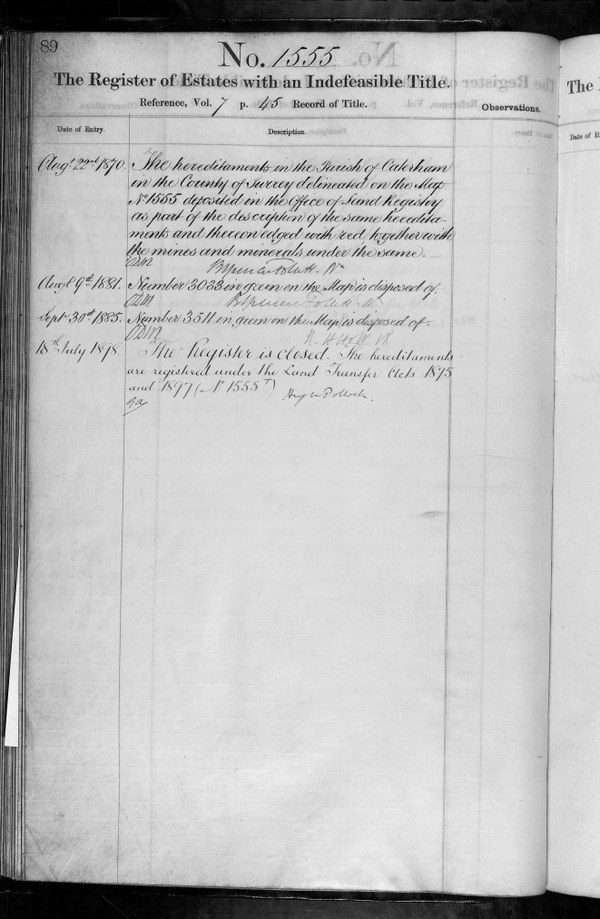 89
No. 1555
The Register of Estates with an Indefeasible Title.
Reference, Vol. 7 p. 45 Record of Title.
Observations.
Date of Entry.
Description.
Augt. 22nd 1870
The hereditaments in the Parish of Caterham
in the County of Surrey delineated on the Map
No 1555 deposited in the Office of Land Registry
as part of the description of the same heredita-
ments and thereon edged with red together with
the mines and minerals under the same.
Augt 9th 1881. Number 3033 in green on the Map is disposed of
Sept 30th 1885. Number 3511 in green on the Map is disposed of
18th July 1898 The Register is closed. The hereditaments
are registered under the Land Transfer Acts 1875
and 1897 (No 1555T) Hugh Pollock.
The
Date of E